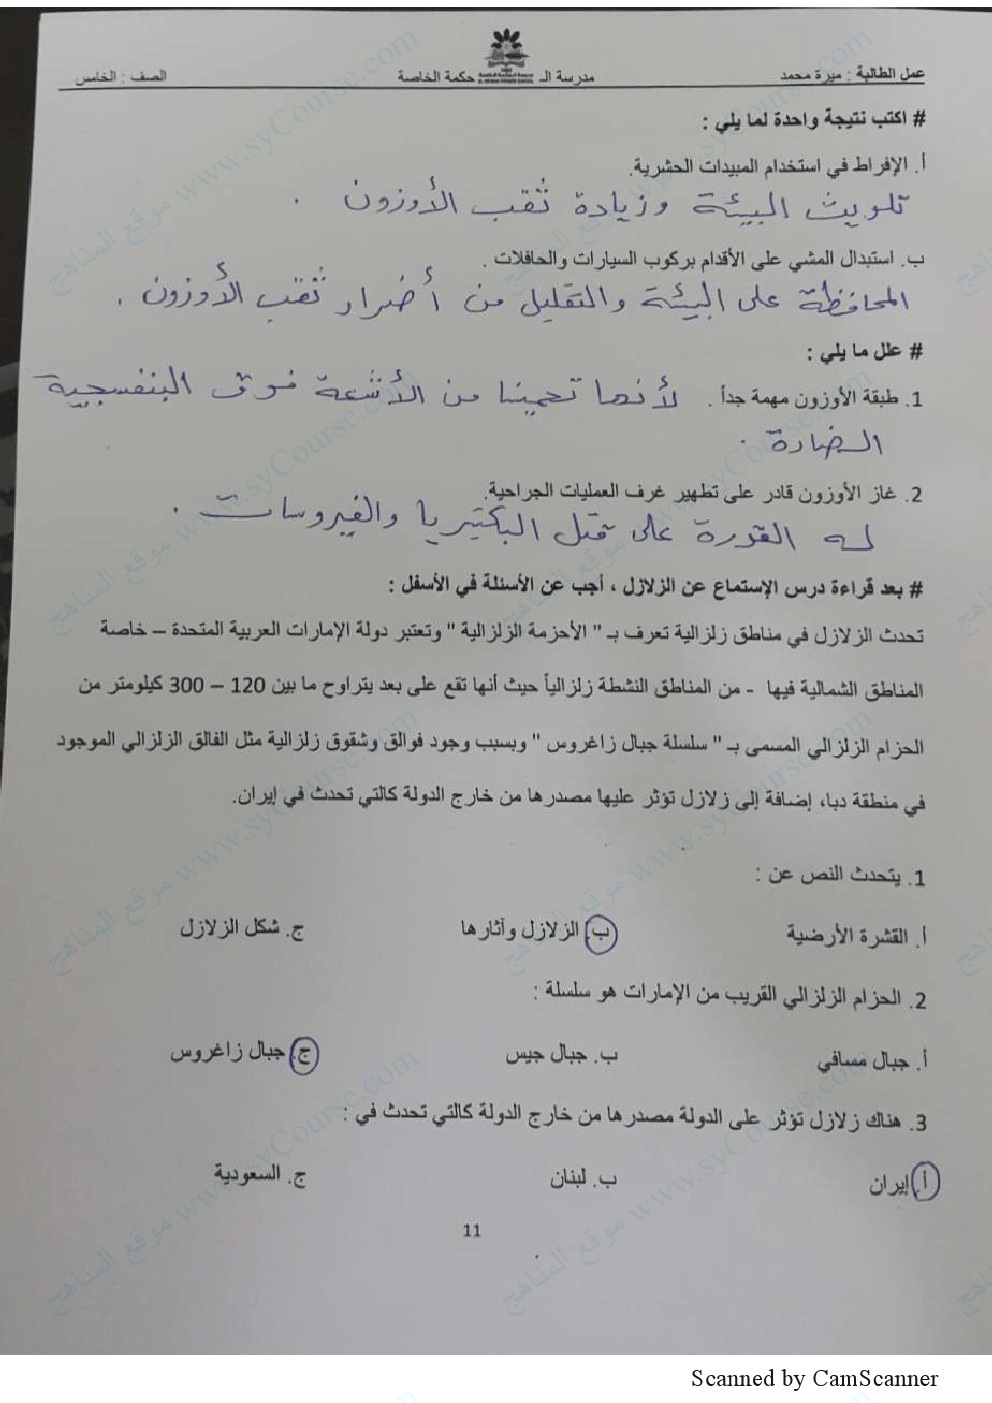 عمل الطالبة : ميرة محمد مدرسة الـ حكمة الخاصة الصف : الخامس
# اكتب نتيجة واحدة لما يلي :
أ. الإفراط في استخدام المبيدات الحشرية.
تلويث البيئة وزيادة ثقب الأوزون .
ب. استبدال المشي على الأقدام بركوب السيارات والحافلات .
المحافظة على البيئة والتقليل من أضرار ثقب الأوزون .
# علل ما يلي :
1. طبقة الأوزون مهمة جداً . لأنها تحمينا من الأشعة فوق البنفسجية
الضارة .
2. غاز الأوزون قادر على تطهير غرف العمليات الجراحية.
له القدرة على قتل البكتيريا والفيروسات .
# بعد قراءة درس الإستماع عن الزلازل ، أجب عن الأسئلة في الأسفل :
تحدث الزلازل في مناطق زلزالية تعرف بـ " الأحزمة الزلزالية " وتعتبر دولة الإمارات العربية المتحدة – خاصة
المناطق الشمالية فيها - من المناطق النشطة زلزالياً حيث أنها تقع على بعد يتراوح ما بين 120 – 300 كيلومتر من
الحزام الزلزالي المسمى بـ " سلسلة جبال زاغروس " وبسبب وجود فوالق وشقوق زلزالية مثل الفالق الزلزالي الموجود
في منطقة دبا، إضافة إلى زلازل تؤثر عليها مصدرها من خارج الدولة كالتي تحدث في إيران.
1. يتحدث النص عن :
أ. القشرة الأرضية ب. الزلازل وآثارها ج. شكل الزلازل
2. الحزام الزلزالي القريب من الإمارات هو سلسلة :
أ. جبال مسافي ب. جبال جيس ج. جبال زاغروس
3. هناك زلازل تؤثر على الدولة مصدرها من خارج الدولة كالتي تحدث في :
أ. إيران ب. لبنان ج. السعودية
11
موقع المناهج www.syCourse.com
Scanned by CamScanner